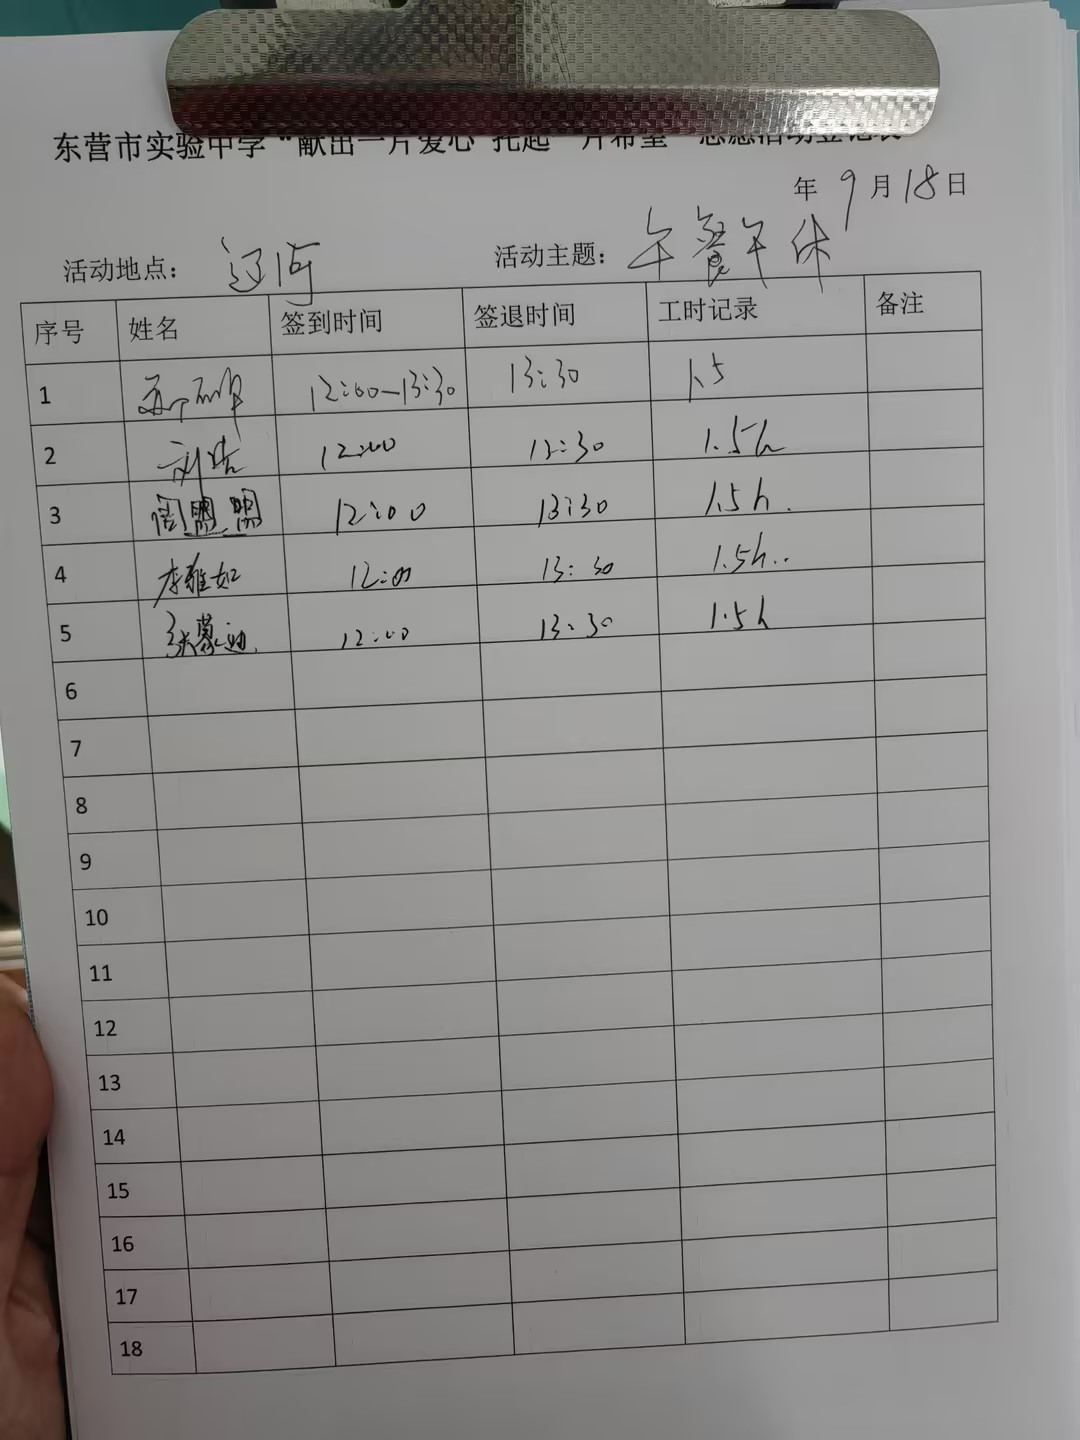 东营市实验中学“献出一片爱心 托起一片希望”志愿活动登记表
年 9 月 18 日
活动地点： 辽河 活动主题： 午餐午休
序号 姓名 签到时间 签退时间 工时记录 备注
1 12:00—13:30 13:30 1.5
2 刘 12:00 13:30 1.5h
3 周盟盟 12:00 13:30 1.5h.
4 李雅如 12:00 13:30 1.5h..
5 张蒙迪 12:00 13:30 1.5h
6
7
8
9
10
11
12
13
14
15
16
17
18